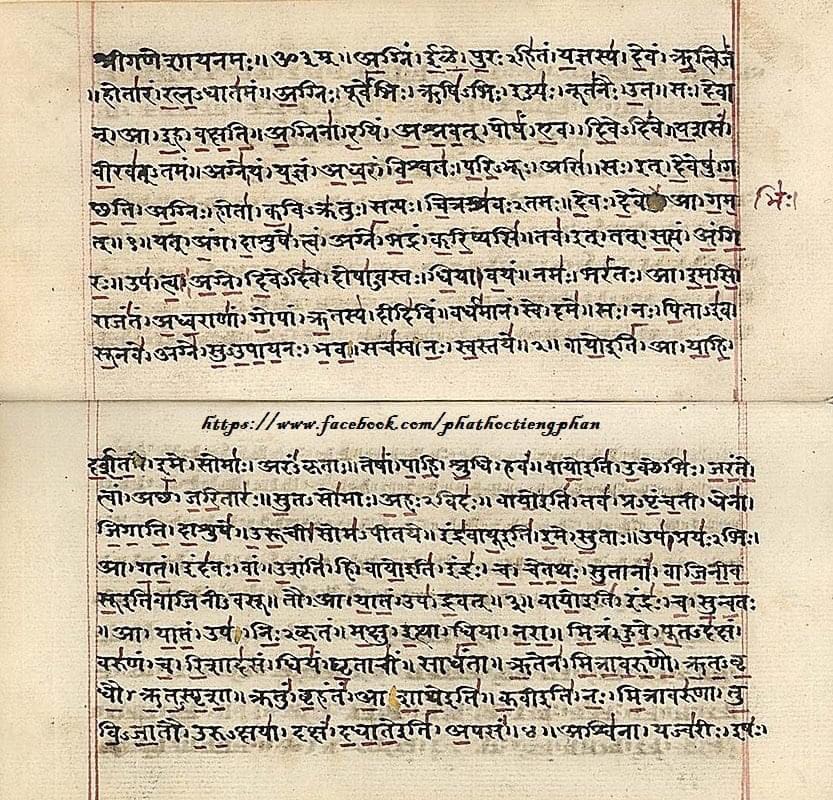 श्रीगणेशायनमः॥ॐ३म्॥अ॒ग्निं।ई॒ळे॒।पु॒रःऽहि॑तं।य॒ज्ञस्य॑।दे॒वं।ऋ॒त्विजं॑
॥होता॑रं।र॒त्न॒ऽधात॑मं॥अ॒ग्निः।पूर्वे॑भिः।ऋषि॑ऽभिः।ईड्यः॑।नूत॑नैः।उ॒त।सः।दे॒वा
न्।आ।इ॒ह।व॒क्ष॒ति॒॥अ॒ग्निना॑।र॒यिं।अ॒श्न॒व॒त्।पोषं॑।ए॒व।दि॒वेऽदि॑वे।य॒शसं॑
वी॒रव॑त्ऽतमं॥अग्ने॑।यं।य॒ज्ञं।अ॒ध्व॒रं।वि॒श्वतः॑।प॒रि॒ऽभूः।असि॑।सः।इत्।दे॒वेषु॑।ग॒
च्छ॒ति॒।अ॒ग्निः।होता॑।क॒विऽक्र॑तुः।स॒त्यः।चि॒त्रश्र॑वःऽतमः॥दे॒वः।दे॒वे।आ।ग॒म॒ भिः॑।
त्॥१॥यत्।अं॒ग।दा॒शुषे॑।त्वं।अग्ने॑।भ॒द्रं।क॒रि॒ष्यसि॑।तव॑।इत्।तत्।स॒त्यं।अं॒गि॒
रः॒॥उप॑।त्वा॒।अ॒ग्ने॒।दि॒वेऽदि॑वे।दोषा॑ऽवस्तः।धि॒या।व॒यं।नमः॑।भरं॑तः।आ।इ॒म॒सि॒
राजं॑तं।अ॒ध्व॒राणां॑।गो॒पां।ऋ॒तस्य॑।दीदि॑विं।वर्ध॑मानं।स्वे।दमे॑॥सः।नः॒।पि॒ताऽइ॑व
सू॒नवे॑।अग्ने॑।सु॒ऽउ॒पा॒य॒नः।भ॒व॒।सच॑स्व।नः॒।स्व॒स्तये॑॥२॥वायो॒इति॑।आ।या॒हि॒।
https://www.facebook.com/phathoctiengphan
द॒र्श॒त॒।इ॒मे।सोमाः॑।अरं॑ऽकृताः॥तेषां॑।पा॒हि॒।श्रु॒धि।हवं॑॥वायो॒इति॑।उ॒क्थेभिः॑।जरं॑ते
त्वां।अच्छ॑।ज॒रि॒तारः॑॥सु॒तऽसो॑माः।अ॒हः॒ऽविदः॑॥वायो॒इति॑।तव॑।प्र॒ऽपृं॒च॒ती।धेना॑
जि॒गा॒ति॒।दा॒शुषे॑।उ॒रू॒ची।सोम॑ऽपीतये॥इंद्र॑वायू॒इति॑।इ॒मे।सु॒ताः॥उप॑।प्रयः॑ऽभिः।
आ।ग॒तं॒॥इंद॑वः।वां॒।उ॒शंति॑।हि।वायो॒इति॑।इंद्रः॑।च॒।चे॒त॒थः॒।सु॒तानां॑।वा॒जि॒नी॒व॒
सू॒इति॑वाजिनीऽवसू॥तौ।आ।या॒तं॒।उप॑।द्र॒वत्॥३॥वायो॒इति॑।इंद्रः॑।च॒।सु॒न्व॒तः
।आ।या॒तं॒।उप॑।निः॒ऽकृ॒तं॥म॒क्षु।इ॒त्था।धि॒या।न॒रा॒॥मि॒त्रं।हु॒वे॒।पू॒तऽद॑क्षं
वरु॑णं।च॒।रि॒शाद॑सं॥धियं॑।घृ॒ताचीं॑।साधं॑ता॥ऋ॒तेन॑।मि॒त्रा॒व॒रु॒णौ॒।ऋ॒त॒ऽवृ॒
धौ॒।ऋ॒त॒ऽस्पृ॒शा॒॥क्रतुं॑।बृ॒हंतं॑।आ॒शा॒थे॒इति॑॥क॒वीइति॑।नः॒।मि॒त्रावरु॑णा।तु॒
वि॒ऽजा॒तौ।उ॒रु॒ऽक्षया॑॥दक्षं॑।द॒धा॒ते॒इति॑।अ॒पसं॑॥४॥अश्वि॑ना।यज्व॑रीः।इषः॑।